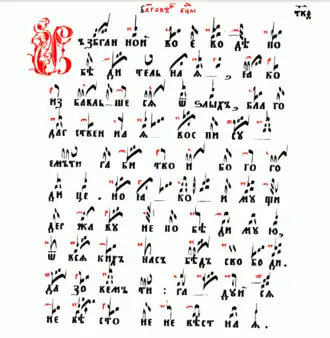 Въ збран ной во е во дѣ по
бѣ ди тель на ѧ , ꙗ ко
из бавль ше сѧ ѿ злыхъ , бла го
дар ствен на ѧ вос пи су
емъ ти ра би тво и бо го ро
ди це . но ꙗ ко и му щи
дер жа ву не по бѣ ди му ю ,
ѿ всѧ кихъ насъ бѣдъ сво бо ди .
да зо вемъ ти : ра дуй сѧ
не вѣ сто не не вѣст на ѧ .